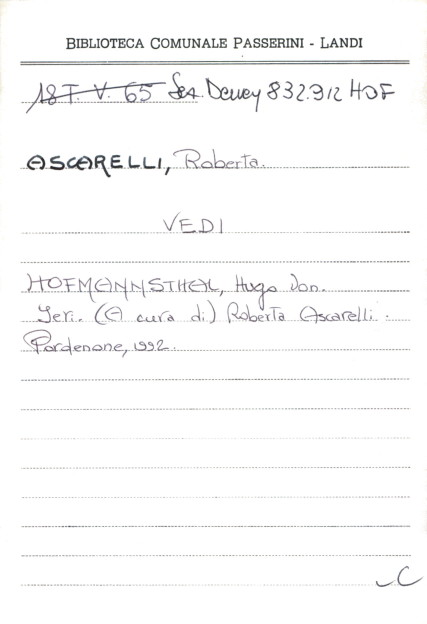 BIBLIOTECA COMUNALE PASSERINI - LANDI
18 F. V. 65 Sez. Dewey 832.912 HOF
ASCARELLI, Roberta.
VEDI
HOFMANNSTHAL, Hugo Von.
Ieri. (A cura di) Roberta Ascarelli.
Pordenone, 1992.
C